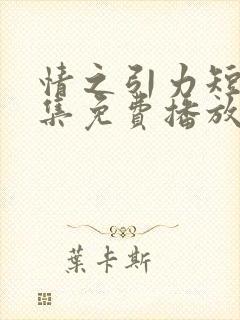 情之引力短
集免費播放
葉卡斯